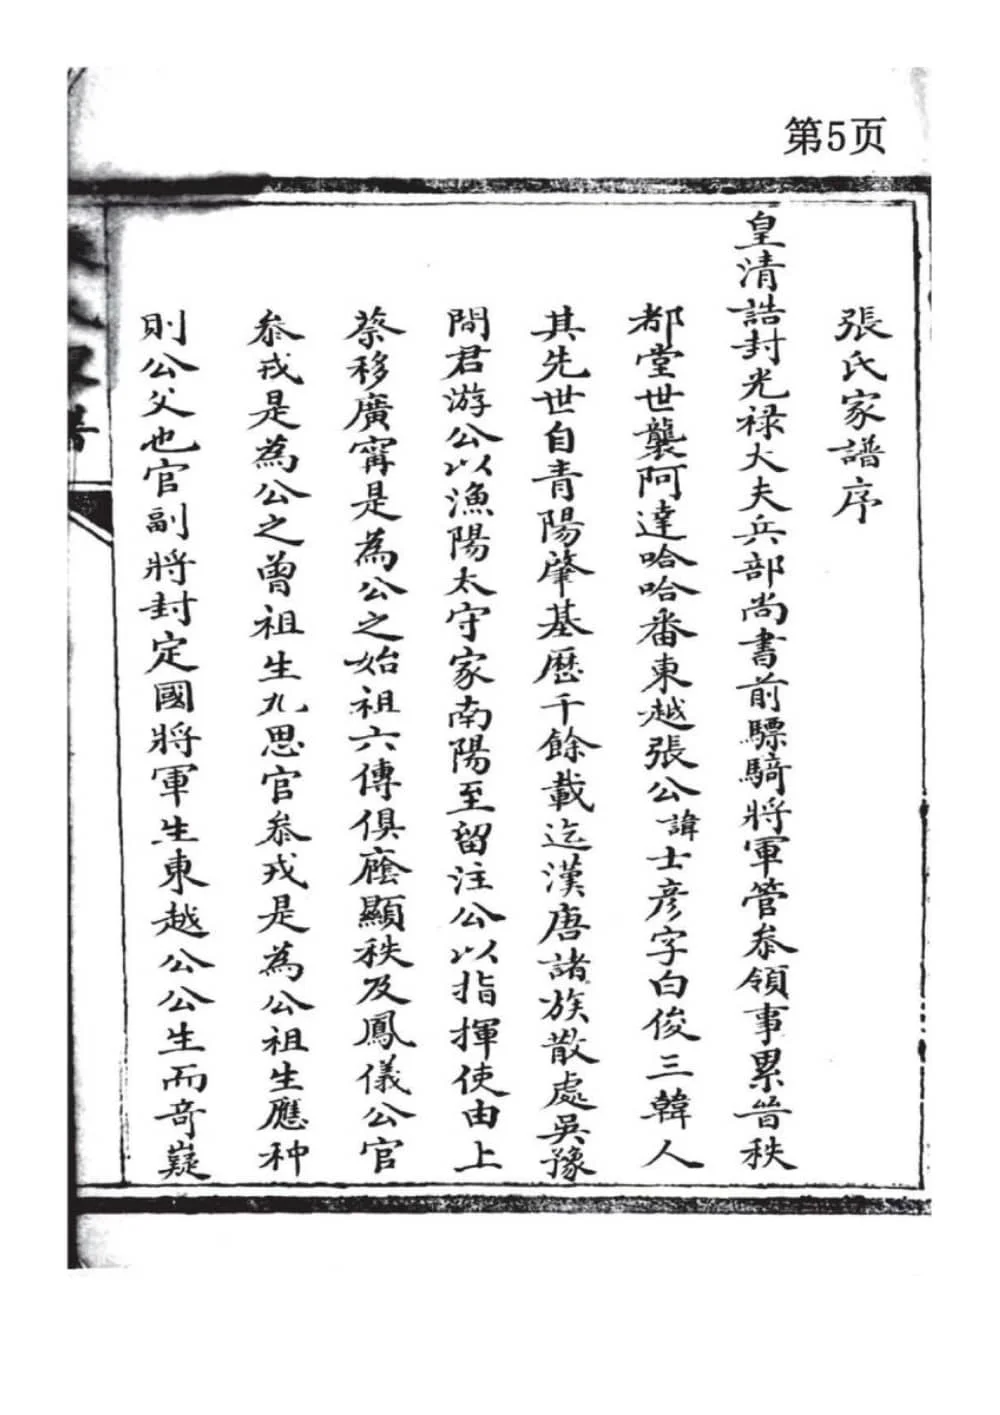 第5页
張氏家譜序
皇清誥封光禄大夫兵部尚書前驃騎將軍管叅領事累晉秩
都堂世襲阿達哈哈番東越張公諱士彦字白俊三韓人
其先世自青陽肇基歷千餘載迄漢唐諸族散處吳豫
間君游公以漁陽太守家南陽至留注公以指揮使由上
蔡移廣甯是為公之始祖六傳俱廕顯秩及鳳儀公官
叅戎是為公之曾祖生九思官叅戎是為公祖生應种
則公父也官副將封定國將軍生東越公公生而竒嶷